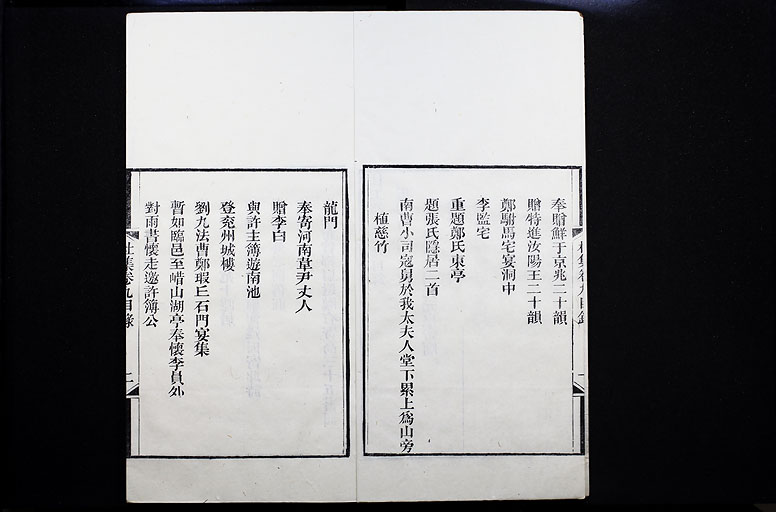 杜集卷九目錄
奉贈鮮于京兆二十韻
贈特進汝陽王二十韻
鄭駙馬宅宴洞中
李監宅
重題鄭氏東亭
題張氏隱居二首
南曹小司寇舅於我太夫人堂下累土爲山旁
植慈竹
龍門
奉寄河南韋尹丈人
贈李白
與許主簿遊南池
登兗州城樓
劉九法曹鄭瑕丘石門宴集
暫如臨邑至㟙山湖亭奉懷李員外
對雨書懷走邀許簿公
杜集卷九目錄
二